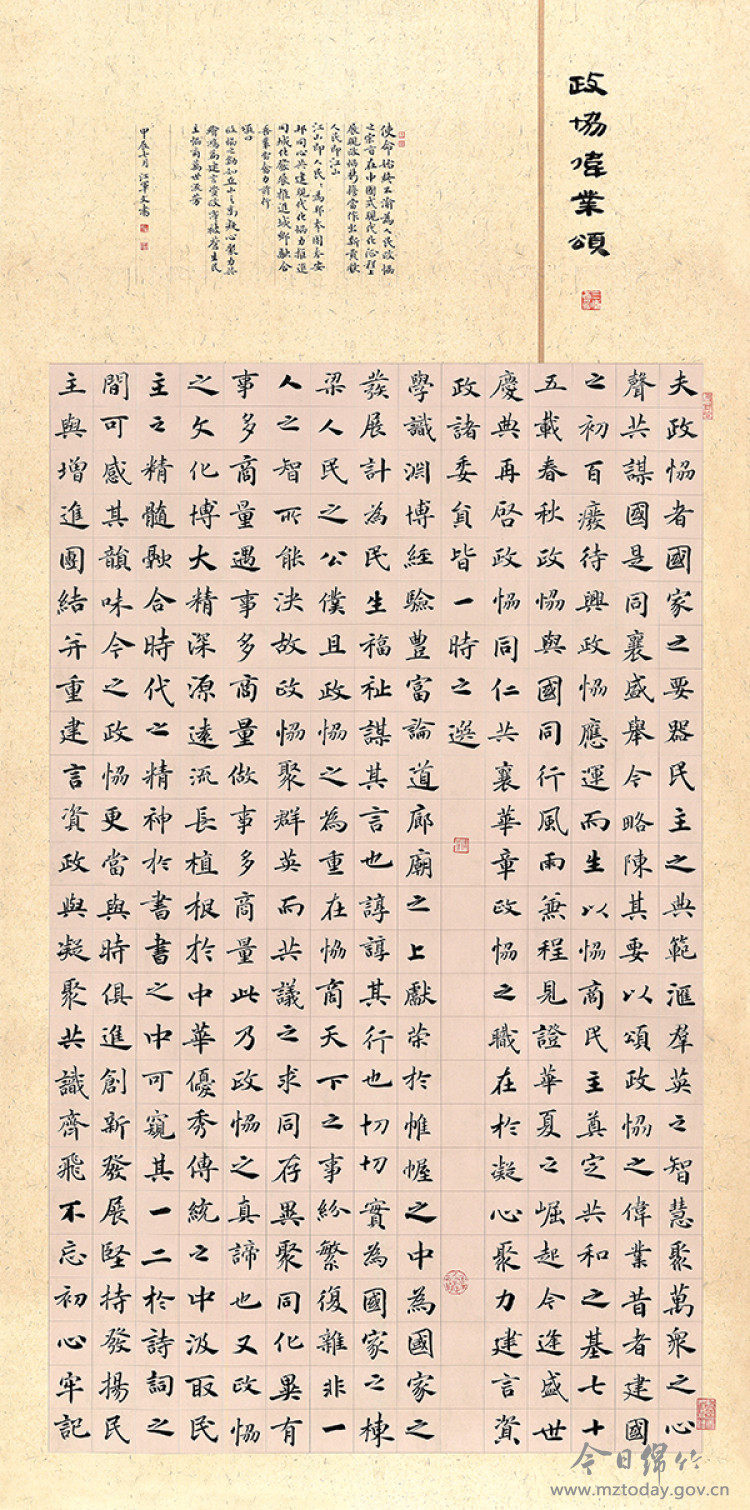 政協偉業頌
夫政協者國家之要器民主之典範滙羣英之智慧聚萬衆之心
聲共謀國是同襄盛舉今略陳其要以頌政協之偉業昔者建國
之初百廢待興政協應運而生以協商民主奠定共和之基七十
五載春秋政協與國同行風雨兼程見證華夏之崛起今逢盛世
慶典再啓政協同仁共襄華章政協之職在於凝心聚力建言資
政諸委員皆一時之選
學識淵博經驗豐富論道廊廟之上獻策於帷幄之中為國家之
發展計為民生福祉謀其言也諄諄其行也切切實為國家之棟
梁人民之公僕且政協之為重在協商天下之事紛繁復雜非一
人之智所能決故政協聚群英而共議之求同存異聚同化異有
事多商量遇事多商量做事多商量此乃政協之真諦也又政協
之文化博大精深源遠流長植根於中華優秀傳統之中汲取民
主之精髓融合時代之精神於書書之中可窺其一二於詩詞之
間可感其韻味今之政協更當與時俱進創新發展堅持發揚民
主與增進團結并重建言資政與凝聚共識齊飛不忘初心牢記
使命始終不渝為人民政協
之宗旨在中國式現代化征程上
展現政協新擔當作出新貢獻
人民即江山
江山即人民為邦本固本安
邦同心共建現代化協力推進
同城化發展推進城鄉融合
吾輩當奮力前行
頌曰
政協之勛如丘山之高凝心聚力共
鴻篇建言資政澤被蒼生民
主協商萬世流芳
甲辰七月江軍文書
今日绵竹
www.mztoday.gov.cn